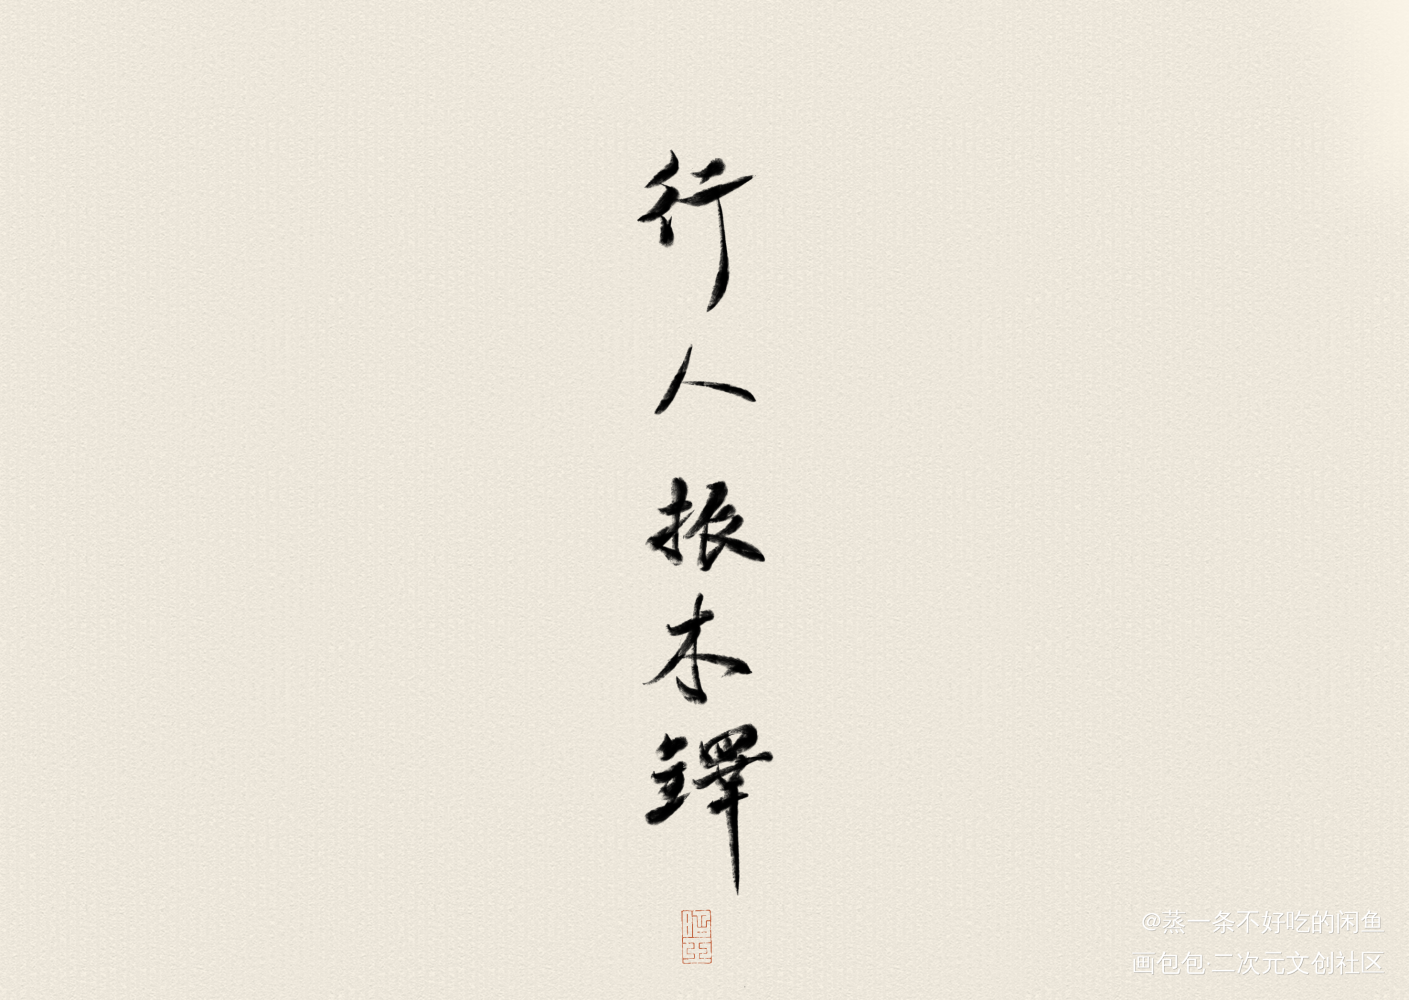 行人振木鐸
@蒸一条不好吃的闲鱼
画包包·二次元文创社区